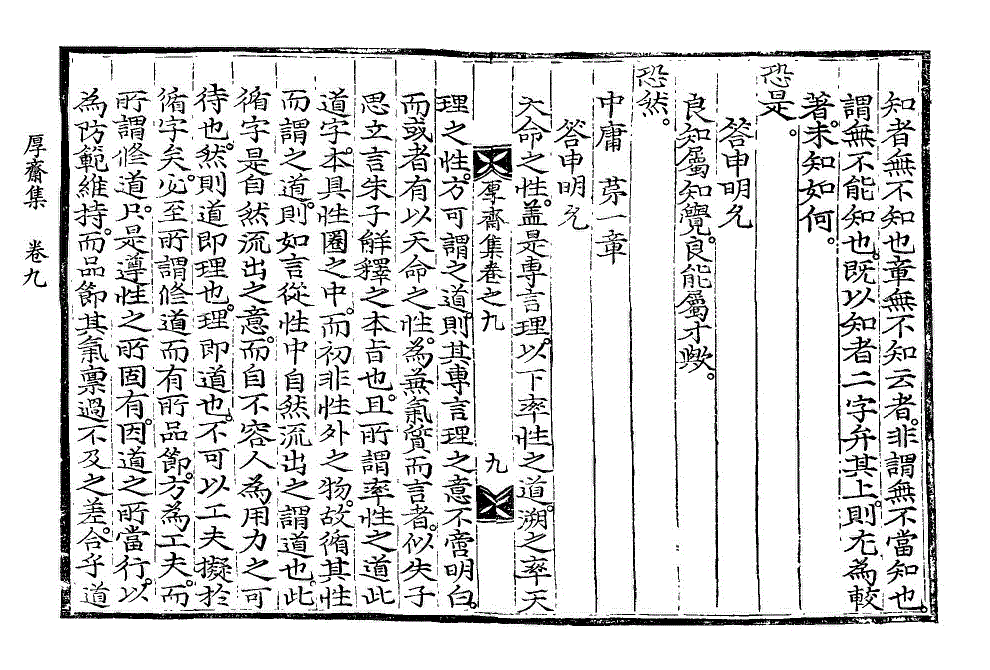 知者無不知也章無不知云者。非謂無不當知也。
謂無不能知也。既以知者二字弁其上。則尤為較
著。未知如何。
恐是。
答申明允
良知屬知覺。良能屬才歟。
恐然。
中庸 苐一章
答申明允
天命之性。盖是專言理。以下率性之道。溯之率天
厚齋集卷之九 九
理之性。方可謂之道。則其專言理之意不啻明白。
而或者有以天命之性。為兼氣質而言者。似失子
思立言朱子解釋之本旨也。且所謂率性之道此
道字。本具性圈之中。而初非性外之物。故循其性
而謂之道。則如言從性中自然流出之謂道也。此
循字是自然流出之意。而自不容人為用力之可
待也。然則道即理也。理即道也。不可以工夫擬於
循字矣。必至所謂修道而有所品節。方為工夫。而
所謂修道。只是遵性之所固有。因道之所當行。以
為防範維持。而品節其氣禀過不及之差。合乎道
厚齋集 卷九